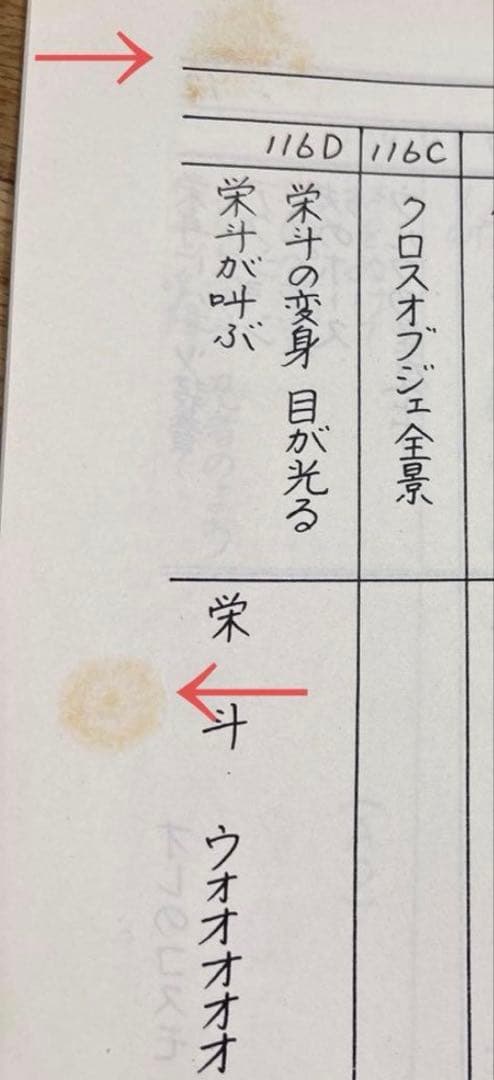 116C
クロスオブジェ全景
116D
栄斗の変身 目が光る
栄斗が叫ぶ
栄斗 ウオオオオオ